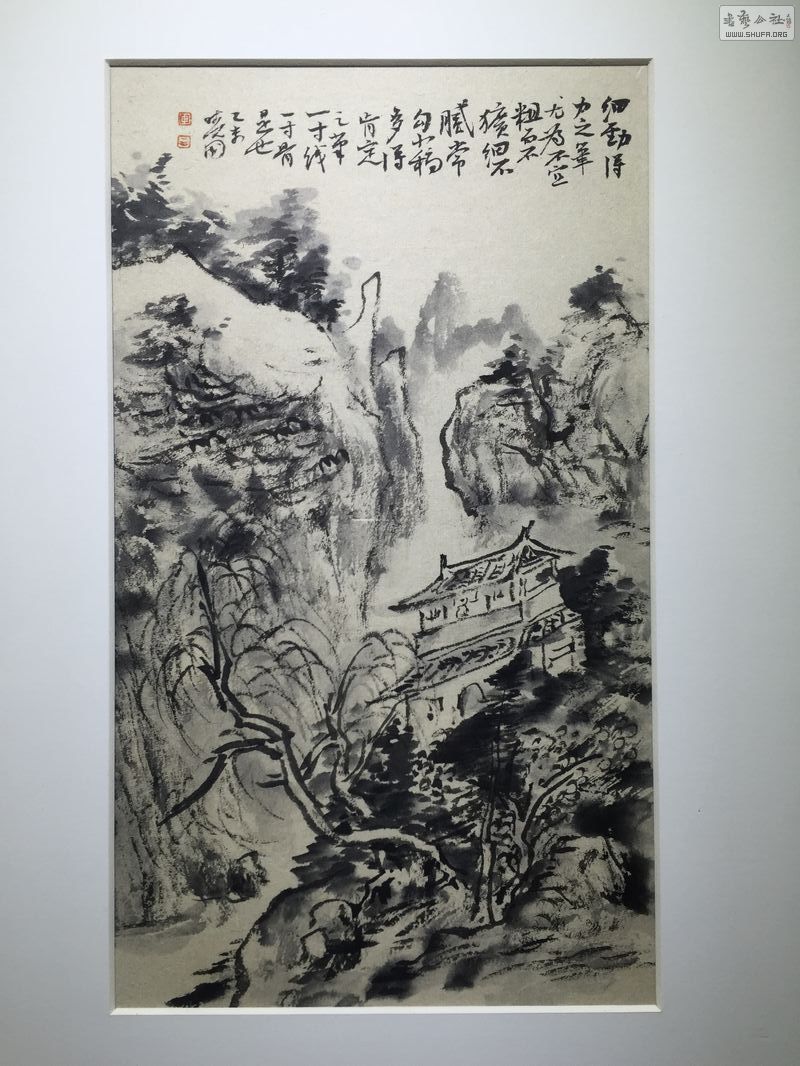 细劲得
力之笔
尤为不宜
粗而不
犷细不
腻常
勾小稿
多得
肯定
之笔
一寸线
一寸骨
是也
乙未
晓园
书艺公社
WWW.SHUFA.ORG